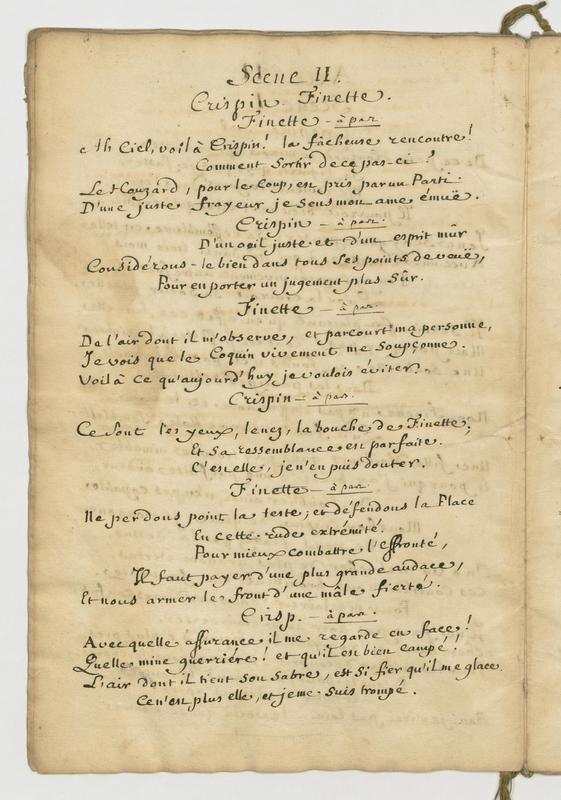 Scene II.
Crispin Finette.
Finette - à par
Ah Ciel, voilà Crispin! la fâcheuse rencontre!
Comment Sortir de ce pas-ci?
Le Houzard, pour le Coup, est pris par un Parti.
D'une juste frayeur je Sens mon ame émuë.
Crispin - à par.
D'un oeil juste et d'un esprit mûr
Considérons-le bien dans tous Ses points de veuë,
Pour en porter un jugement plus Sûr.
Finette - à par.
De l'air dont il m'observe, et parcourt ma personne,
Je vois que le Coquin vivement me Soupçonne.
Voilà ce qu'aujourd'huy je voulois éviter.
Crispin - à par.
Ce Sont les yeux, le nez, la bouche de Finette;
Et Sa ressemblance est parfaite.
C'est elle, je n'en puis douter.
Finette - à par.
Ne perdons point la teste; et défendons la Place
En cette rude extrémité.
Pour mieux combattre l'effronté,
Il faut payer d'une plus grande audace,
Et nous armer le front d'une mâle fierté.
Crisp. - à par.
Avec quelle assurance il me regarde en face!
Quelle mine guerriére! et qu'il est bien campé!
L'air dont il tient Son Sabre, est Si fier qu'il me glace.
Ce n'est plus elle, et je me Suis trompé.